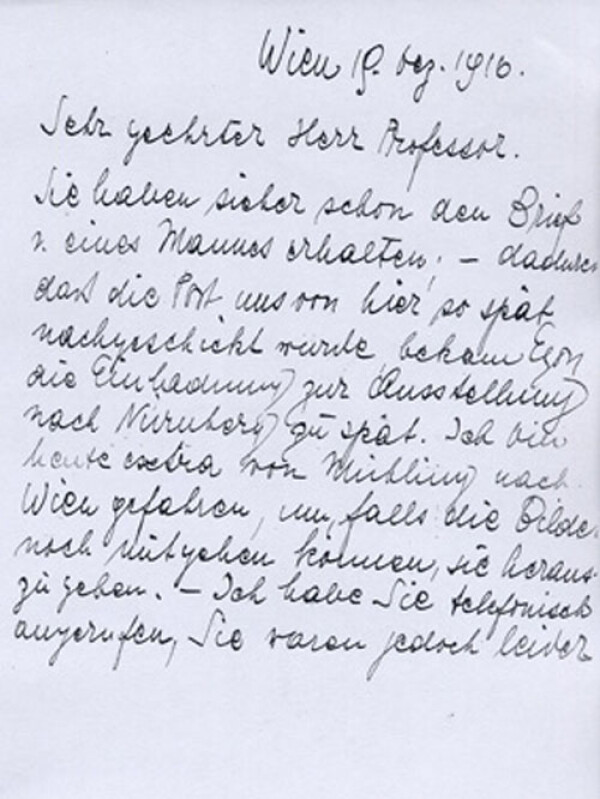 Wien 19. Dez. 1916.
Sehr geehrter Herr Professor.
Sie haben sicher schon den Brief
eines Mannes erhalten. – dadurch
dass die Post uns von hier so spät
nachgeschickt wurde bekam Egon
die Einladung zur Ausstellung
nach Nürnberg zu spät. Ich bin
heute extra von Mühling nach
Wien gefahren, um, falls die Bilder
noch mitgehen können, sie heraus-
zugeben. – Ich habe Sie telefonisch
angerufen, Sie waren jedoch leider